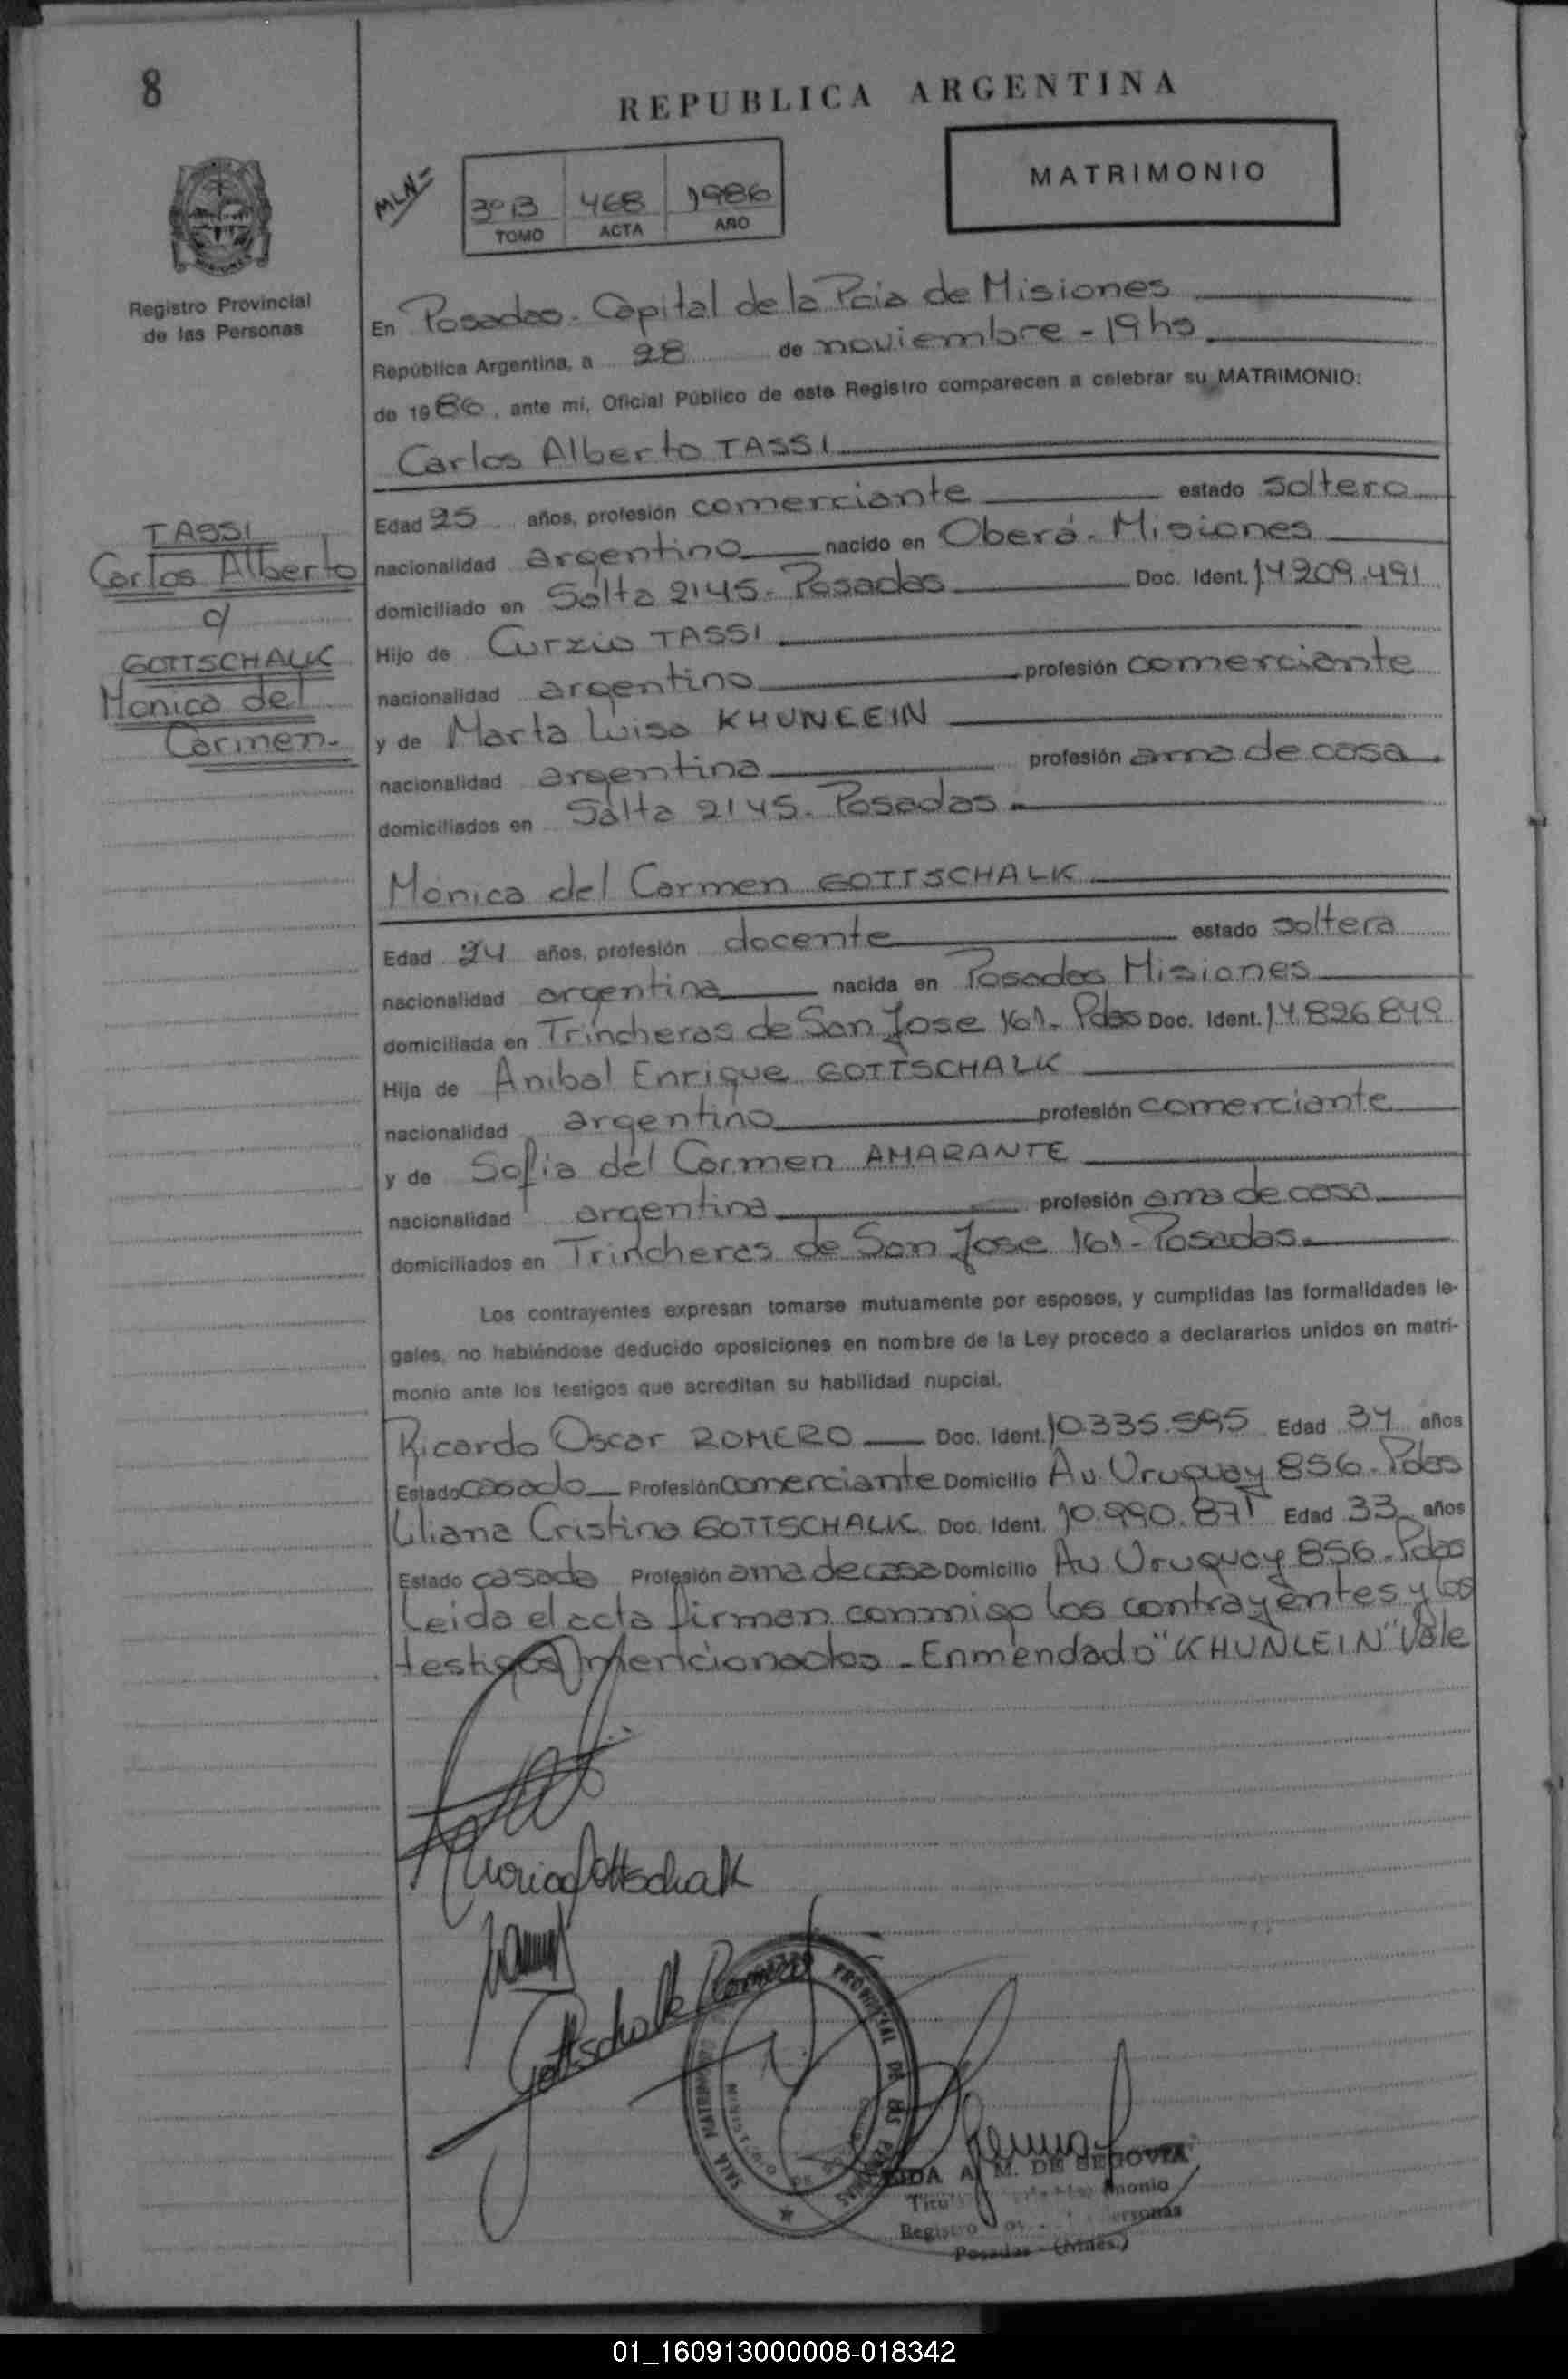 8
REPUBLICA ARGENTINA
MLN=
3º B 468 1986
TOMO ACTA AÑO
MATRIMONIO
Registro Provincial
de las Personas
En Posadas. Capital de la Pcia de Misiones
República Argentina, a 28 de noviembre - 19 hs
de 1986, ante mí, Oficial Público de este Registro comparecen a celebrar su MATRIMONIO:
Carlos Alberto TASSI
Edad 25 años, profesión comerciante estado soltero
nacionalidad argentino nacido en Oberá. Misiones
domiciliado en Salta 2145. Posadas Doc. Ident. 14.209.491
Hijo de Curzio TASSI
nacionalidad argentino profesión comerciante
y de Marta Luisa KHUNLEIN
nacionalidad argentina profesión ama de casa
domiciliados en Salta 2145. Posadas
TASSI
Carlos Alberto
c/
GOTTSCHALK
Monica del
Carmen.-
Mónica del Carmen GOTTSCHALK
Edad 24 años, profesión docente estado soltera
nacionalidad argentina nacida en Posadas Misiones
domiciliada en Trincheras de San Jose 161. Pdas Doc. Ident. 14.826.849
Hija de Anibal Enrique GOTTSCHALK
nacionalidad argentino profesión comerciante
y de Sofia del Carmen AMARANTE
nacionalidad argentina profesión ama de casa
domiciliados en Trincheras de San Jose 161 - Posadas.
Los contrayentes expresan tomarse mutuamente por esposos, y cumplidas las formalidades le-
gales, no habiéndose deducido oposiciones en nombre de la Ley procedo a declararlos unidos en matri-
monio ante los testigos que acreditan su habilidad nupcial.
Ricardo Oscar ROMERO Doc. Ident. 10.335.595 Edad 34 años
Estado casado Profesión comerciante Domicilio Av. Uruguay 856. Pdas
Liliana Cristina GOTTSCHALK Doc. Ident. 10.990.871 Edad 33 años
Estado casada Profesión ama de casa Domicilio Av Uruguay 856. Pdas
Leida el acta firman conmigo los contrayentes y los
testigos mencionados - Enmendado "KHUNLEIN" Vale
Monica Gottschalk
Gottschalk Romero
PROVINCIAL DE LAS PERSONAS
SALA MATRIMONIO
A. M. DE SEGOVIA
Registro
Posadas - (Mnes.)
01_160913000008-018342